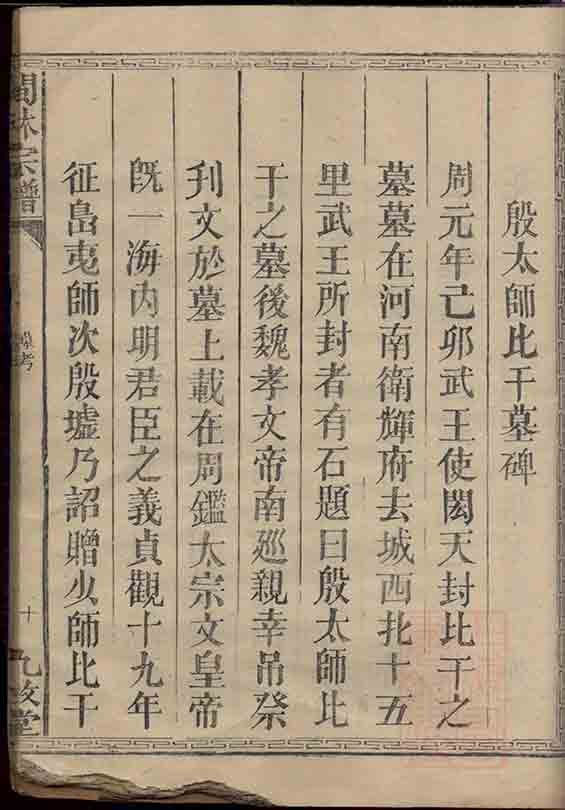 殷太師比干墓碑
周元年己卯武王使閎夭封比干之
墓墓在河南衛輝府去城西北十五
里武王所封者有石題曰殷太師比
干之墓後魏孝文帝南廵親幸吊祭
刋文於墓上載在周鑑太宗文皇帝
旣一海內明君臣之義貞觀十九年
征島夷師次殷墟乃詔贈少師比干
閩林宗譜
墓考
十
九牧堂